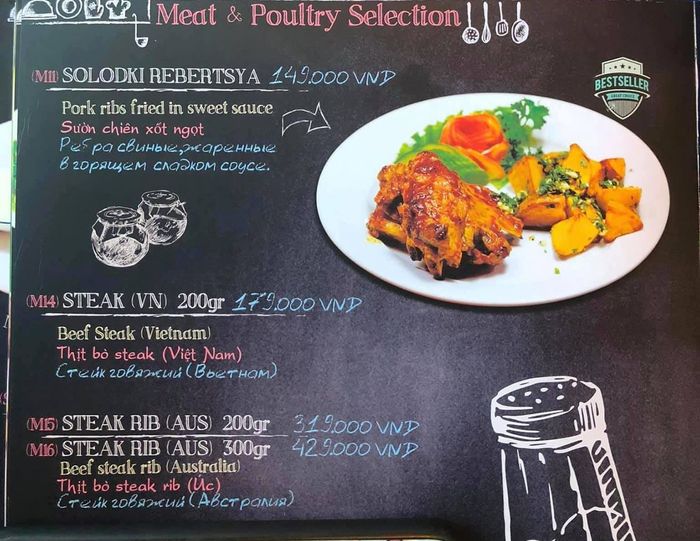 Meat & Poultry Selection
(M11) SOLODKI REBERTSYA 149.000 VND
BESTSELLER
Pork ribs fried in sweet sauce
Sườn chiên xốt ngọt
Ребра свиные, жаренные
в горящем сладком соусе.
(M14) STEAK (VN) 200gr 179.000 VND
Beef Steak (Vietnam)
Thịt bò steak (Việt Nam)
Стейк говяжий (Вьетнам)
(M15) STEAK RIB (AUS) 200gr 319.000 VND
(M16) STEAK RIB (AUS) 300gr 429.000 VND
Beef steak rib (Australia)
Thịt bò steak rib (Úc)
Стейк говяжий (Австралия)